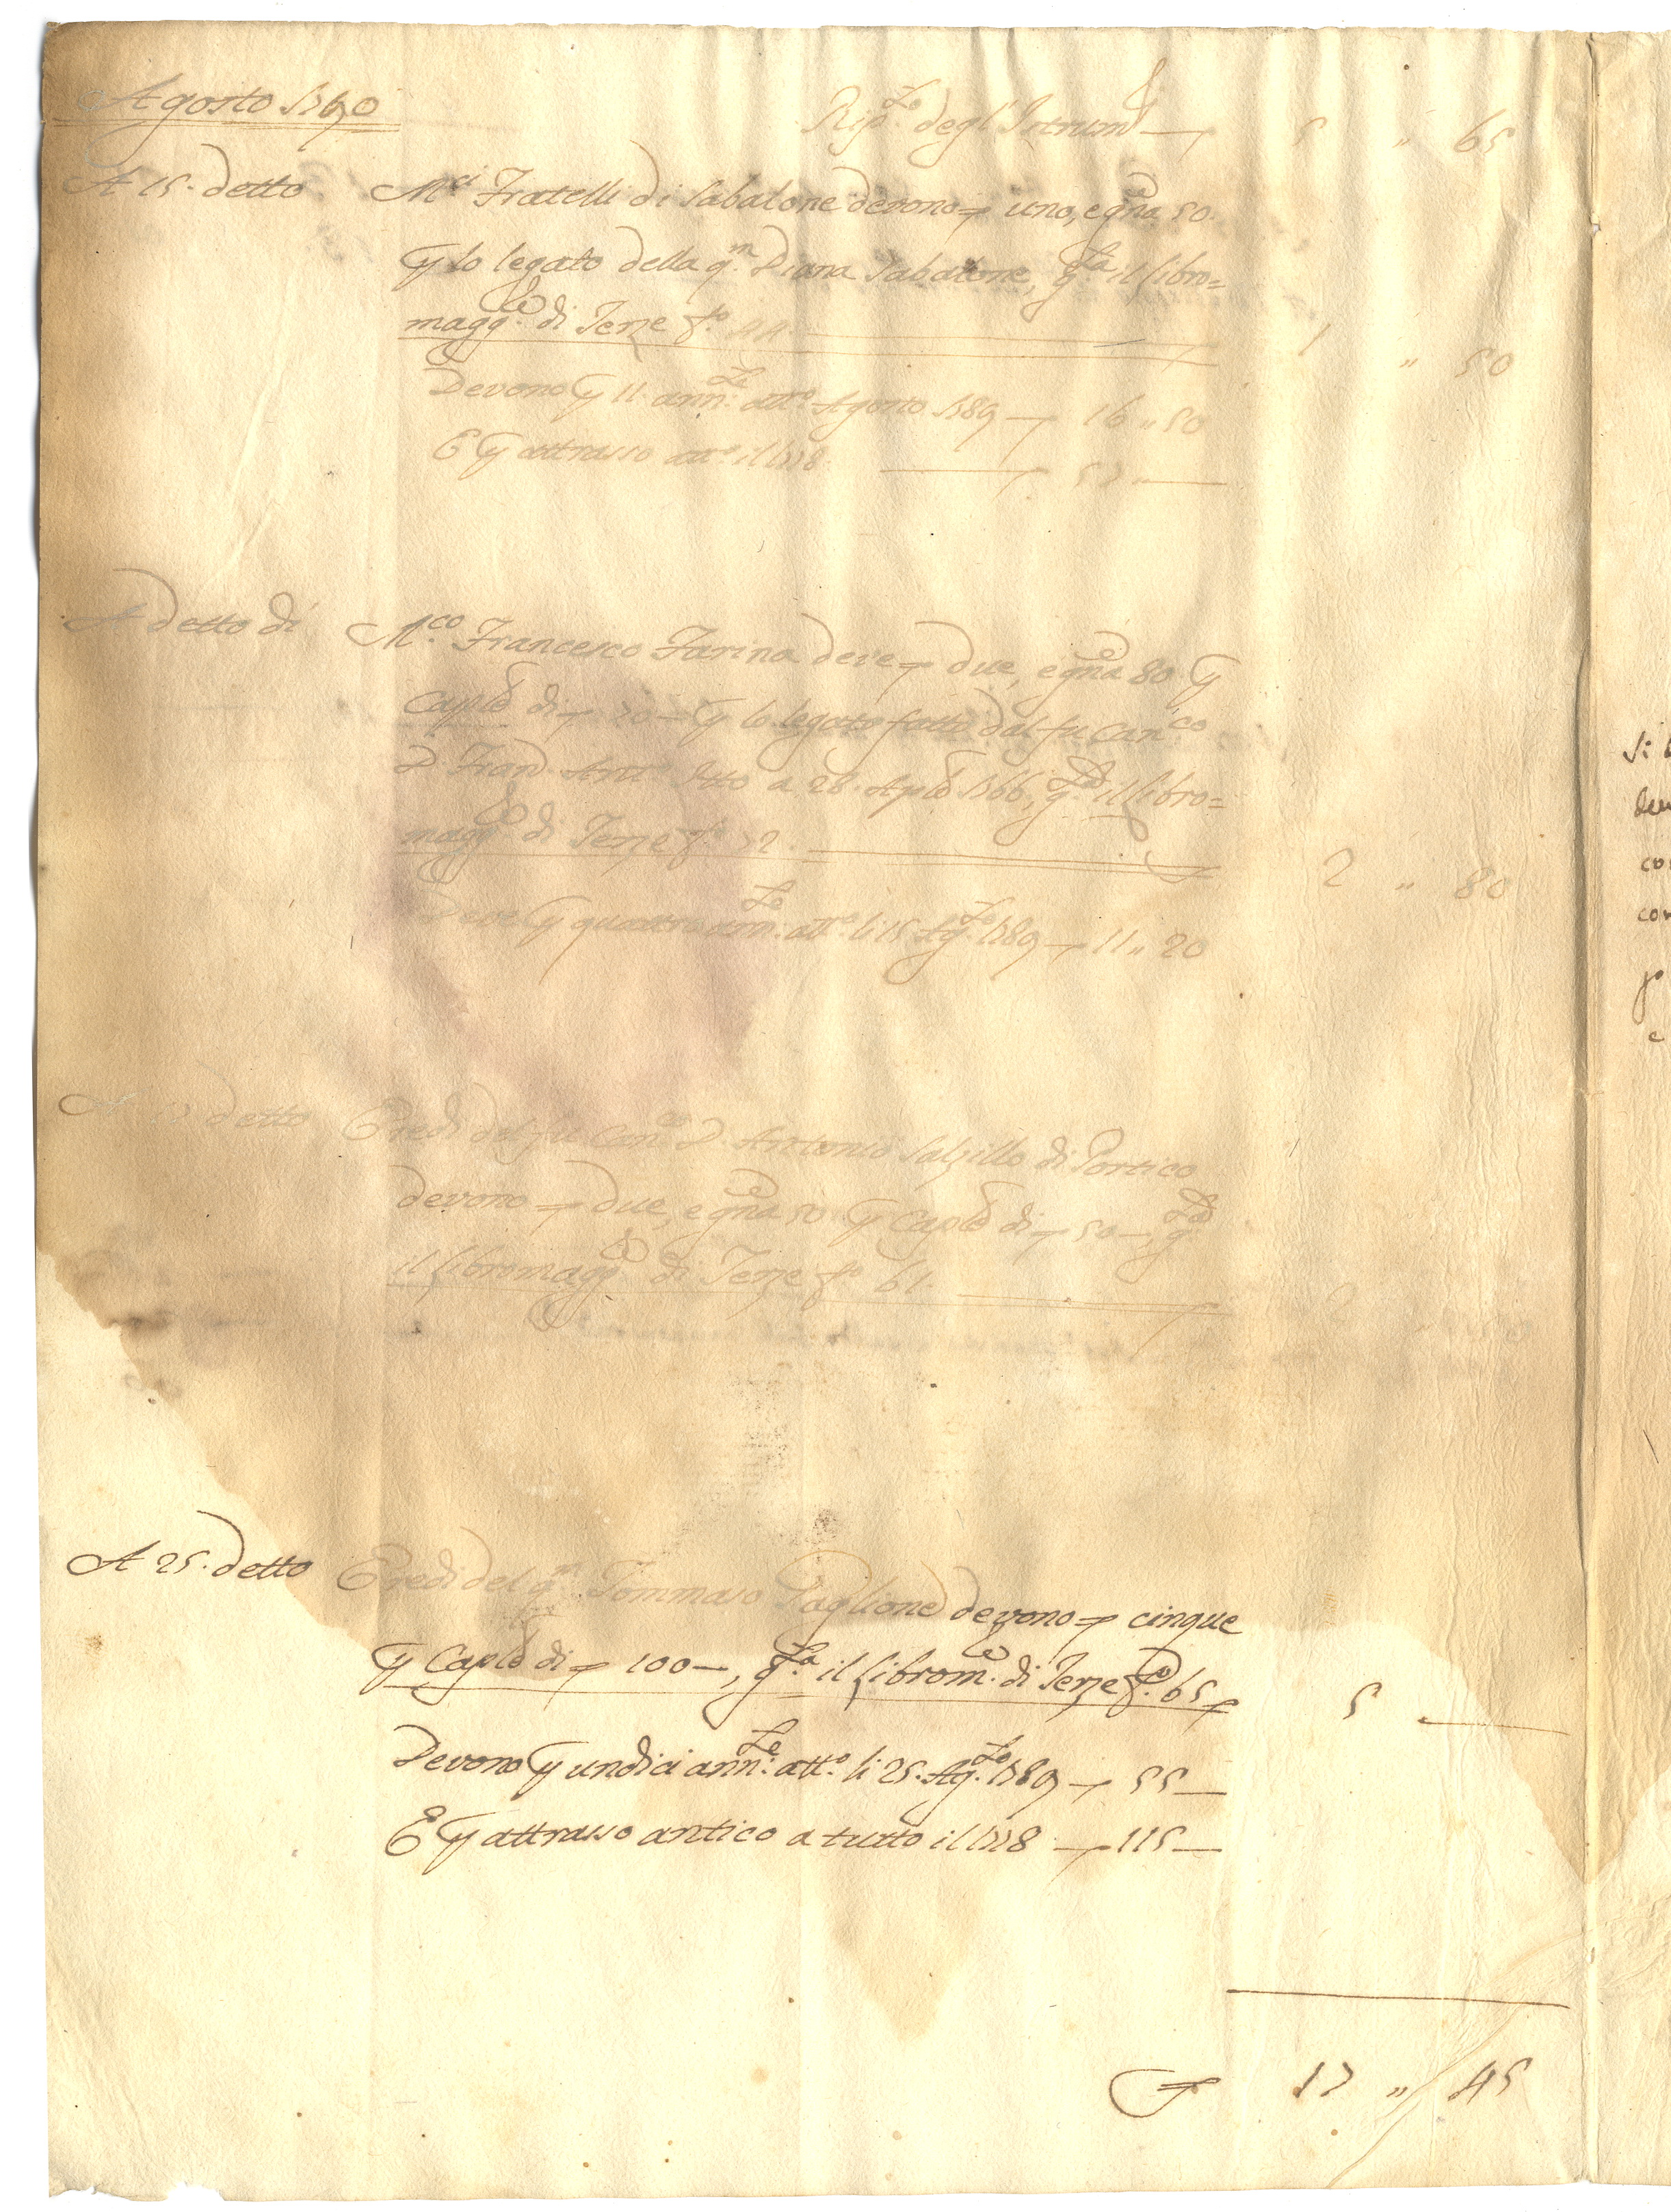 Agosto 1790
Rip.to degl'Istrum.ti — 5 " 65
A 15. detto M.ci Fratelli di Sabatone devono uno, e gña 50
p lo legato della q.m Diana Sabatone, g.ta il libro=
magg.e di Terze f.o 44. 1 " 50
Devono p 11. ann.te att.o Agosto 1789 — 16 " 50
E p attrasso att.o il 1778 — 57 " —
A detto dì M.co Francesco Farina deve due, e gña 80 p
Caple di 70 — p lo legato fatto dal fu Can.co
D. Fran. Ant.o a 28. Aple 1766, g.ta il libro=
magg.e di Terze f.o 72. 2 " 80
Deve p quattro ann.te att.o li 15 Ag.to 1789 — 11 " 20
detto Eredi del fu Can.co D. Antonio Salzillo di Portico
devono due, e gña 50 p Caple di 50 —, g.ta
il libromagg.e di Terze f.o 61. 2 " 50
A 25. detto Eredi del q.m Tommaso Paglione devono cinque
p Caple di 100 —, g.ta il librom.e di Terze f.o 65 5 —
Devono p undici ann.te att.o li 25. Ag.to 1789 — 55 —
E p attrasso antico a tutto il 1778 — 115 —
17 " 45